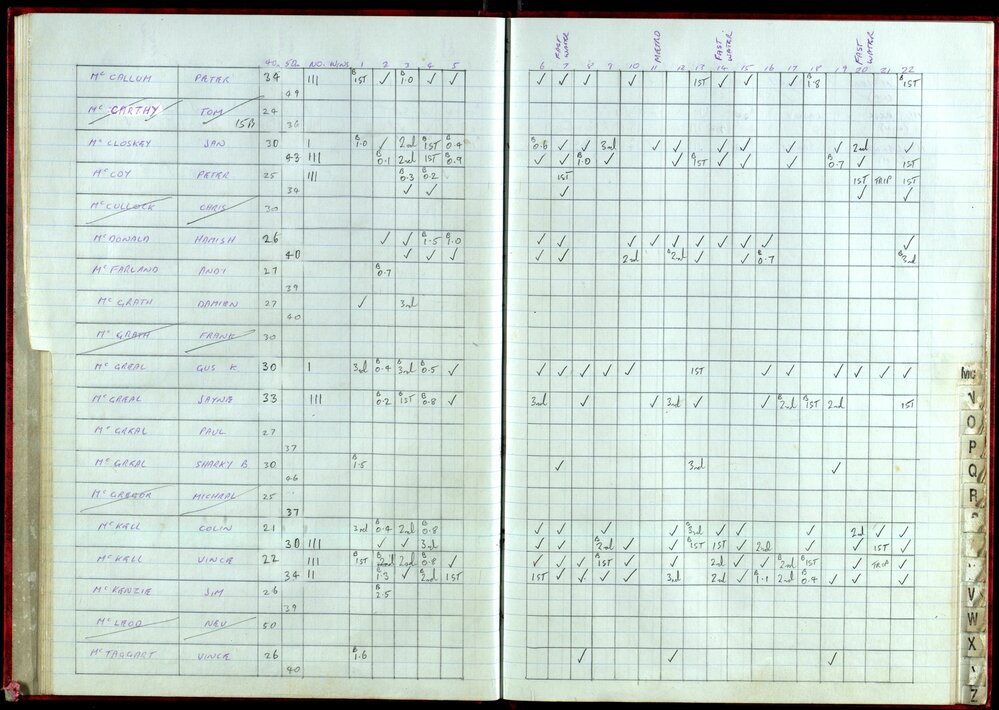 FAST WATER METRO FAST WATER FAST WATER
40. 50. NO. WINS 1 2 3 4 5 6 7 8 9 10 11 12 13 14 15 16 17 18 19 20 21 22
Mc CALLUM PETER 34 III B 1ST ✓ B 1.0 ✓ ✓ ✓ ✓ ✓ ✓ ✓ 1ST ✓ ✓ ✓ B 1.8 B 1ST
49
Mc CARTHY TOM 24
15B 36
Mc CLOSKEY JAN 30 I B 1.0 ✓ 2nd B 1ST B 0.4 B 0.6 ✓ ✓ 3rd ✓ ✓ ✓ ✓ ✓ ✓ 2nd ✓
43 III B 0.1 2nd 1ST B 0.9 ✓ ✓ B 1.0 ✓ ✓ B 1ST ✓ ✓ ✓ B 0.7 ✓ 1ST
Mc COY PETER 25 III B 0.3 B 0.2 1ST 1ST TRIP 1ST
34 ✓ ✓ ✓ ✓ ✓
Mc CULLOCK CHRIS 30
Mc DONALD HAMISH 26 ✓ ✓ B 1.5 B 1.0 ✓ ✓ ✓ ✓ ✓ ✓ ✓ ✓ ✓ ✓
40 ✓ ✓ ✓ ✓ ✓ 2nd B 2nd ✓ ✓ B 0.7 B 3rd
Mc FARLAND ANDY 27 B 0.7
39
Mc GRATH DAMIEN 27 ✓ 3rd
40
Mc GRATH FRANK 30
Mc GREAL GUS K. 30 I 3rd B 0.4 B 3rd B 0.5 ✓ ✓ ✓ ✓ ✓ ✓ 1ST ✓ ✓ ✓ ✓ ✓ ✓
Mc GREAL JAYNE 33 III B 0.2 B 1ST B 0.8 ✓ 3rd ✓ ✓ 3rd ✓ ✓ B 2nd B 1ST 2nd 1ST
Mc GREAL PAUL 27
37
Mc GREAL SHARKY B. 30 B 1.5 ✓ 3rd ✓
46
Mc GREGOR MICHEAL 25
37
McKELL COLIN 21 3rd B 0.4 2nd B 0.8 ✓ ✓ ✓ ✓ B 3rd ✓ ✓ ✓ 2nd ✓ ✓
30 III ✓ ✓ 3rd ✓ ✓ B 2nd ✓ ✓ B 1ST 1ST ✓ 2nd ✓ ✓ 1ST ✓
McKELL VINCE 22 III B 1ST B 2nd 2nd B 0.8 ✓ ✓ ✓ ✓ 1ST ✓ ✓ 2nd ✓ ✓ B 2nd B 1ST ✓ TRIP ✓
34 II B 1.3 ✓ B 2nd 1ST 1ST ✓ ✓ ✓ ✓ 3rd 2nd ✓ B 1.1 2nd B 0.4 ✓ ✓ ✓
McKENZIE JIM 26 B 2.5
39
McLEOD NEV 50
McTAGGART VINCE 26 B 1.6 ✓ ✓ ✓
40
Mc
N
O
P
Q
R
V
W
X
Z